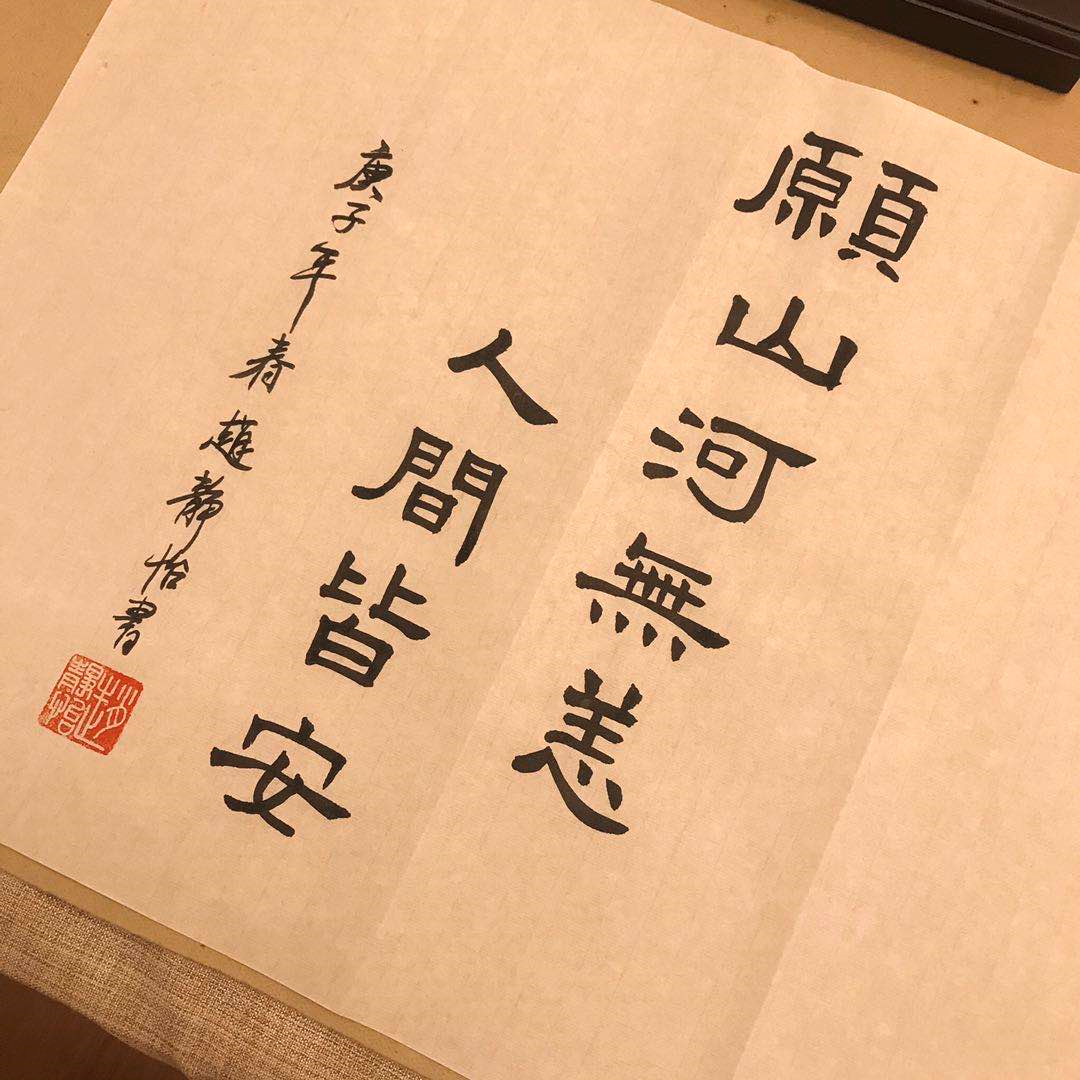 願山河無恙
人間皆安
庚子年春趙靜怡書